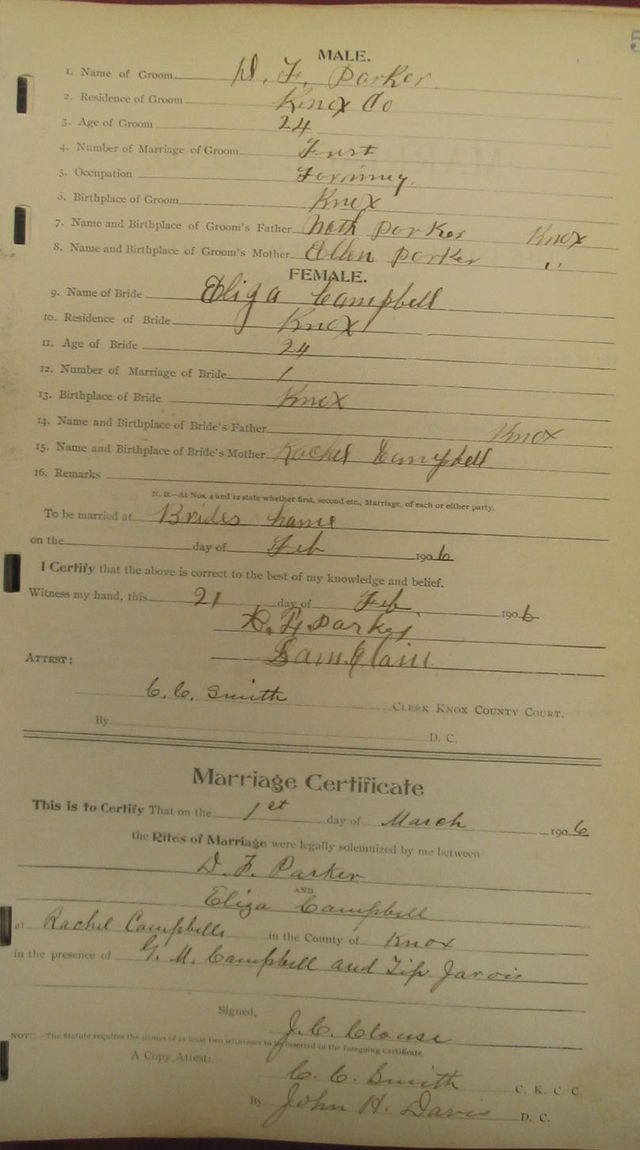 MALE.
1. Name of Groom D. F. Parker
2. Residence of Groom Knox Co
3. Age of Groom 24
4. Number of Marriage of Groom First
5. Occupation Farming
6. Birthplace of Groom Knox
7. Name and Birthplace of Groom's Father Nath Parker Knox
8. Name and Birthplace of Groom's Mother Ellen Parker "
FEMALE.
9. Name of Bride Eliza Campbell
10. Residence of Bride Knox
11. Age of Bride 24
12. Number of Marriage of Bride 1
13. Birthplace of Bride Knox
14. Name and Birthplace of Bride's Father Knox
15. Name and Birthplace of Bride's Mother Rachel Campbell
16. Remarks
N. B.—At Nos. 4 and 12 state whether first, second etc., Marriage, of each or either party.
To be married at Brides home
on the day of Feb 1906
I Certify that the above is correct to the best of my knowledge and belief.
Witness my hand, this 21 day of Feb, 1906
D. F. Parker
Sam
ATTEST:
C. C. Smith CLERK KNOX COUNTY COURT.
By D. C.
Marriage Certificate
This is to Certify That on the 1st day of March 1906
the Rites of Marriage were legally solemnized by me between
D. F. Parker
AND
Eliza Campbell
at Rachel Campbells in the County of Knox
in the presence of G. M. Campbell and Tip Jarvis
Signed,
J. C. Clouse
NOTE—The Statute requires the names of at least two witnesses to be inserted in the foregoing Certificate.
A Copy Attest:
C. C. Smith C. K. C. C.
By John H. Davis D. C.